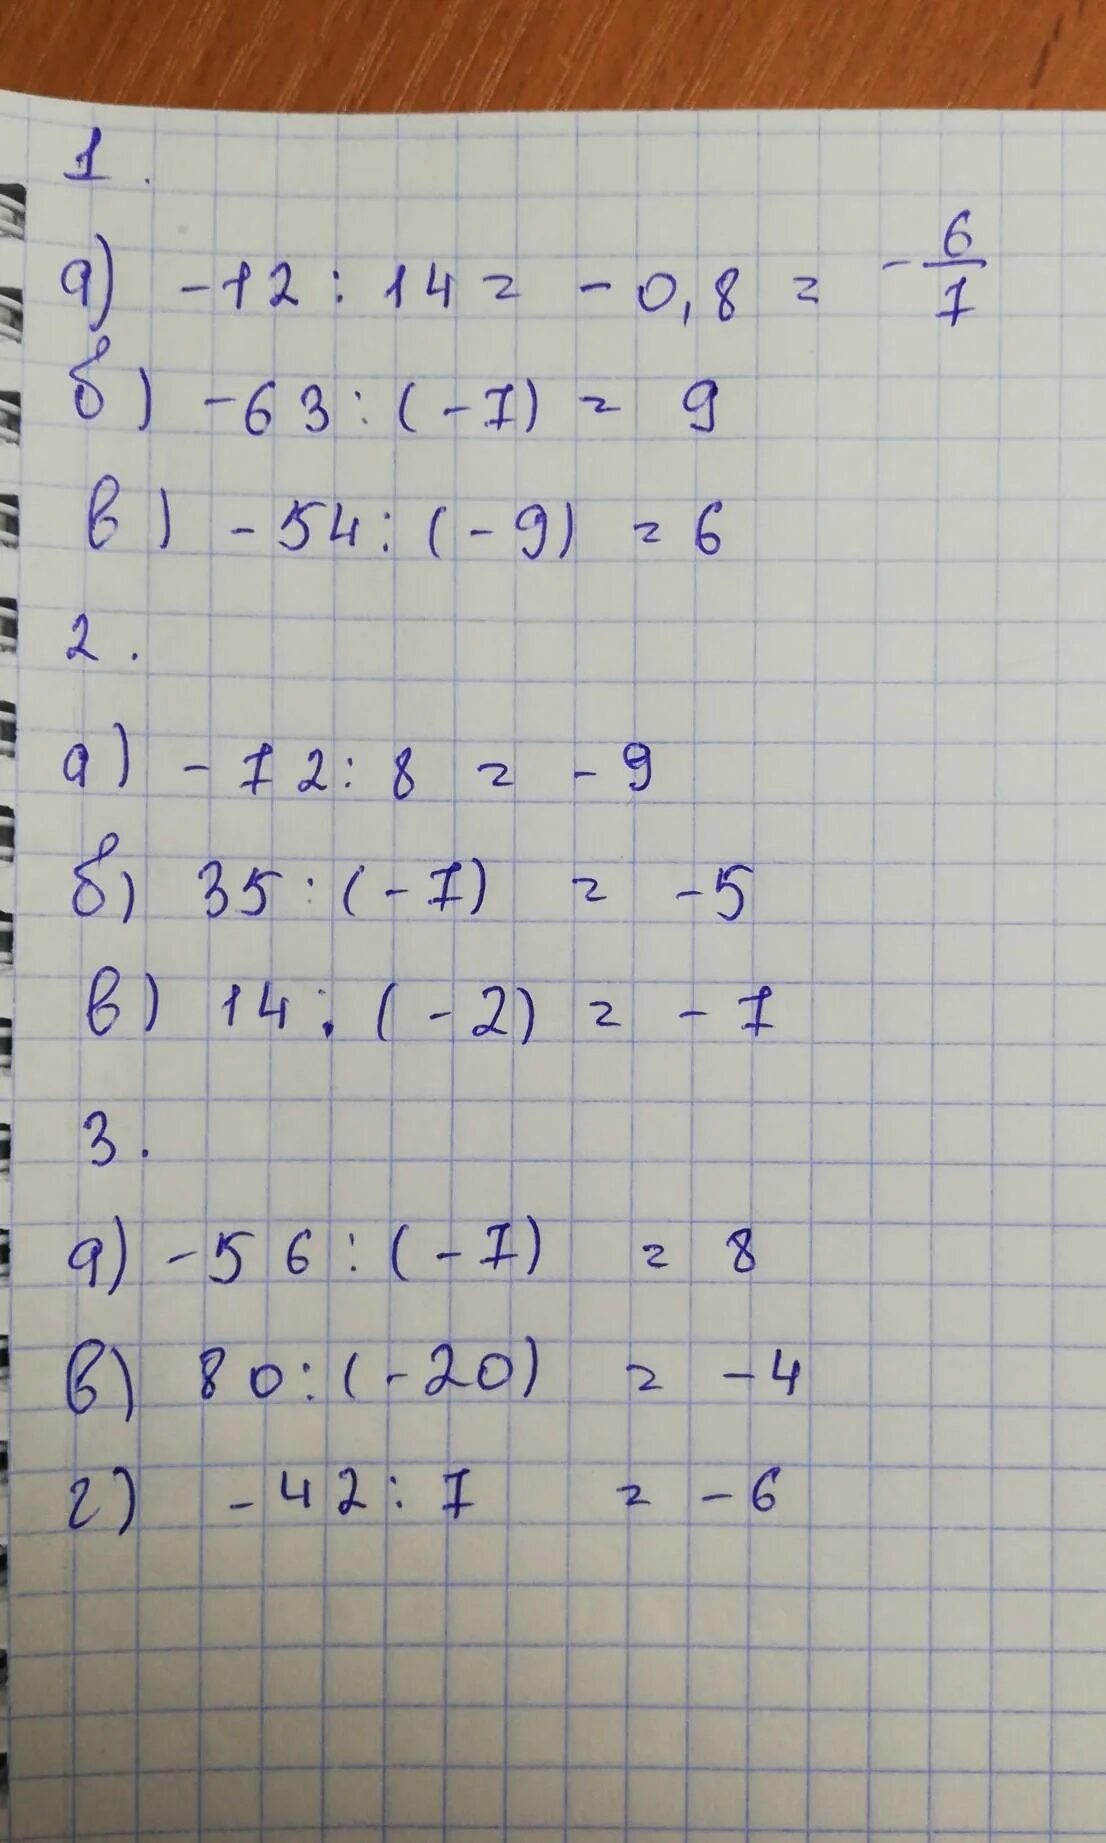 1.
а) -12 : 14 = -0,8 = -6/7
б) -63 : (-7) = 9
в) -54 : (-9) = 6
2.
а) -72 : 8 = -9
б) 35 : (-7) = -5
в) 14 : (-2) = -7
3.
а) -56 : (-7) = 8
в) 80 : (-20) = -4
г) -42 : 7 = -6